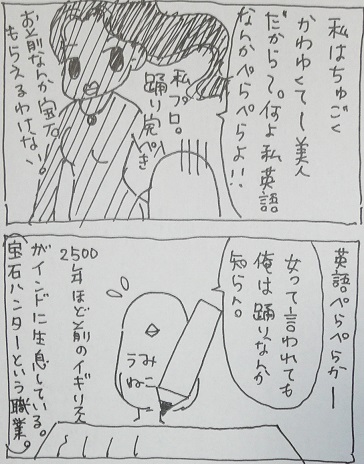 私はちゅごく
かわゆくてー美人
だからて。何よ私英語
なんかぺらぺらよ!!
私プロ。
踊り完ぺき
お前なんか宝石
もらえるわけない。
英語ぺらぺらかー
女って言われても
俺は踊りなんか
知らん。
うみ
ねこ
2500
年ほど前のイギリス
がインドに生息している。
宝石ハンターという職業。